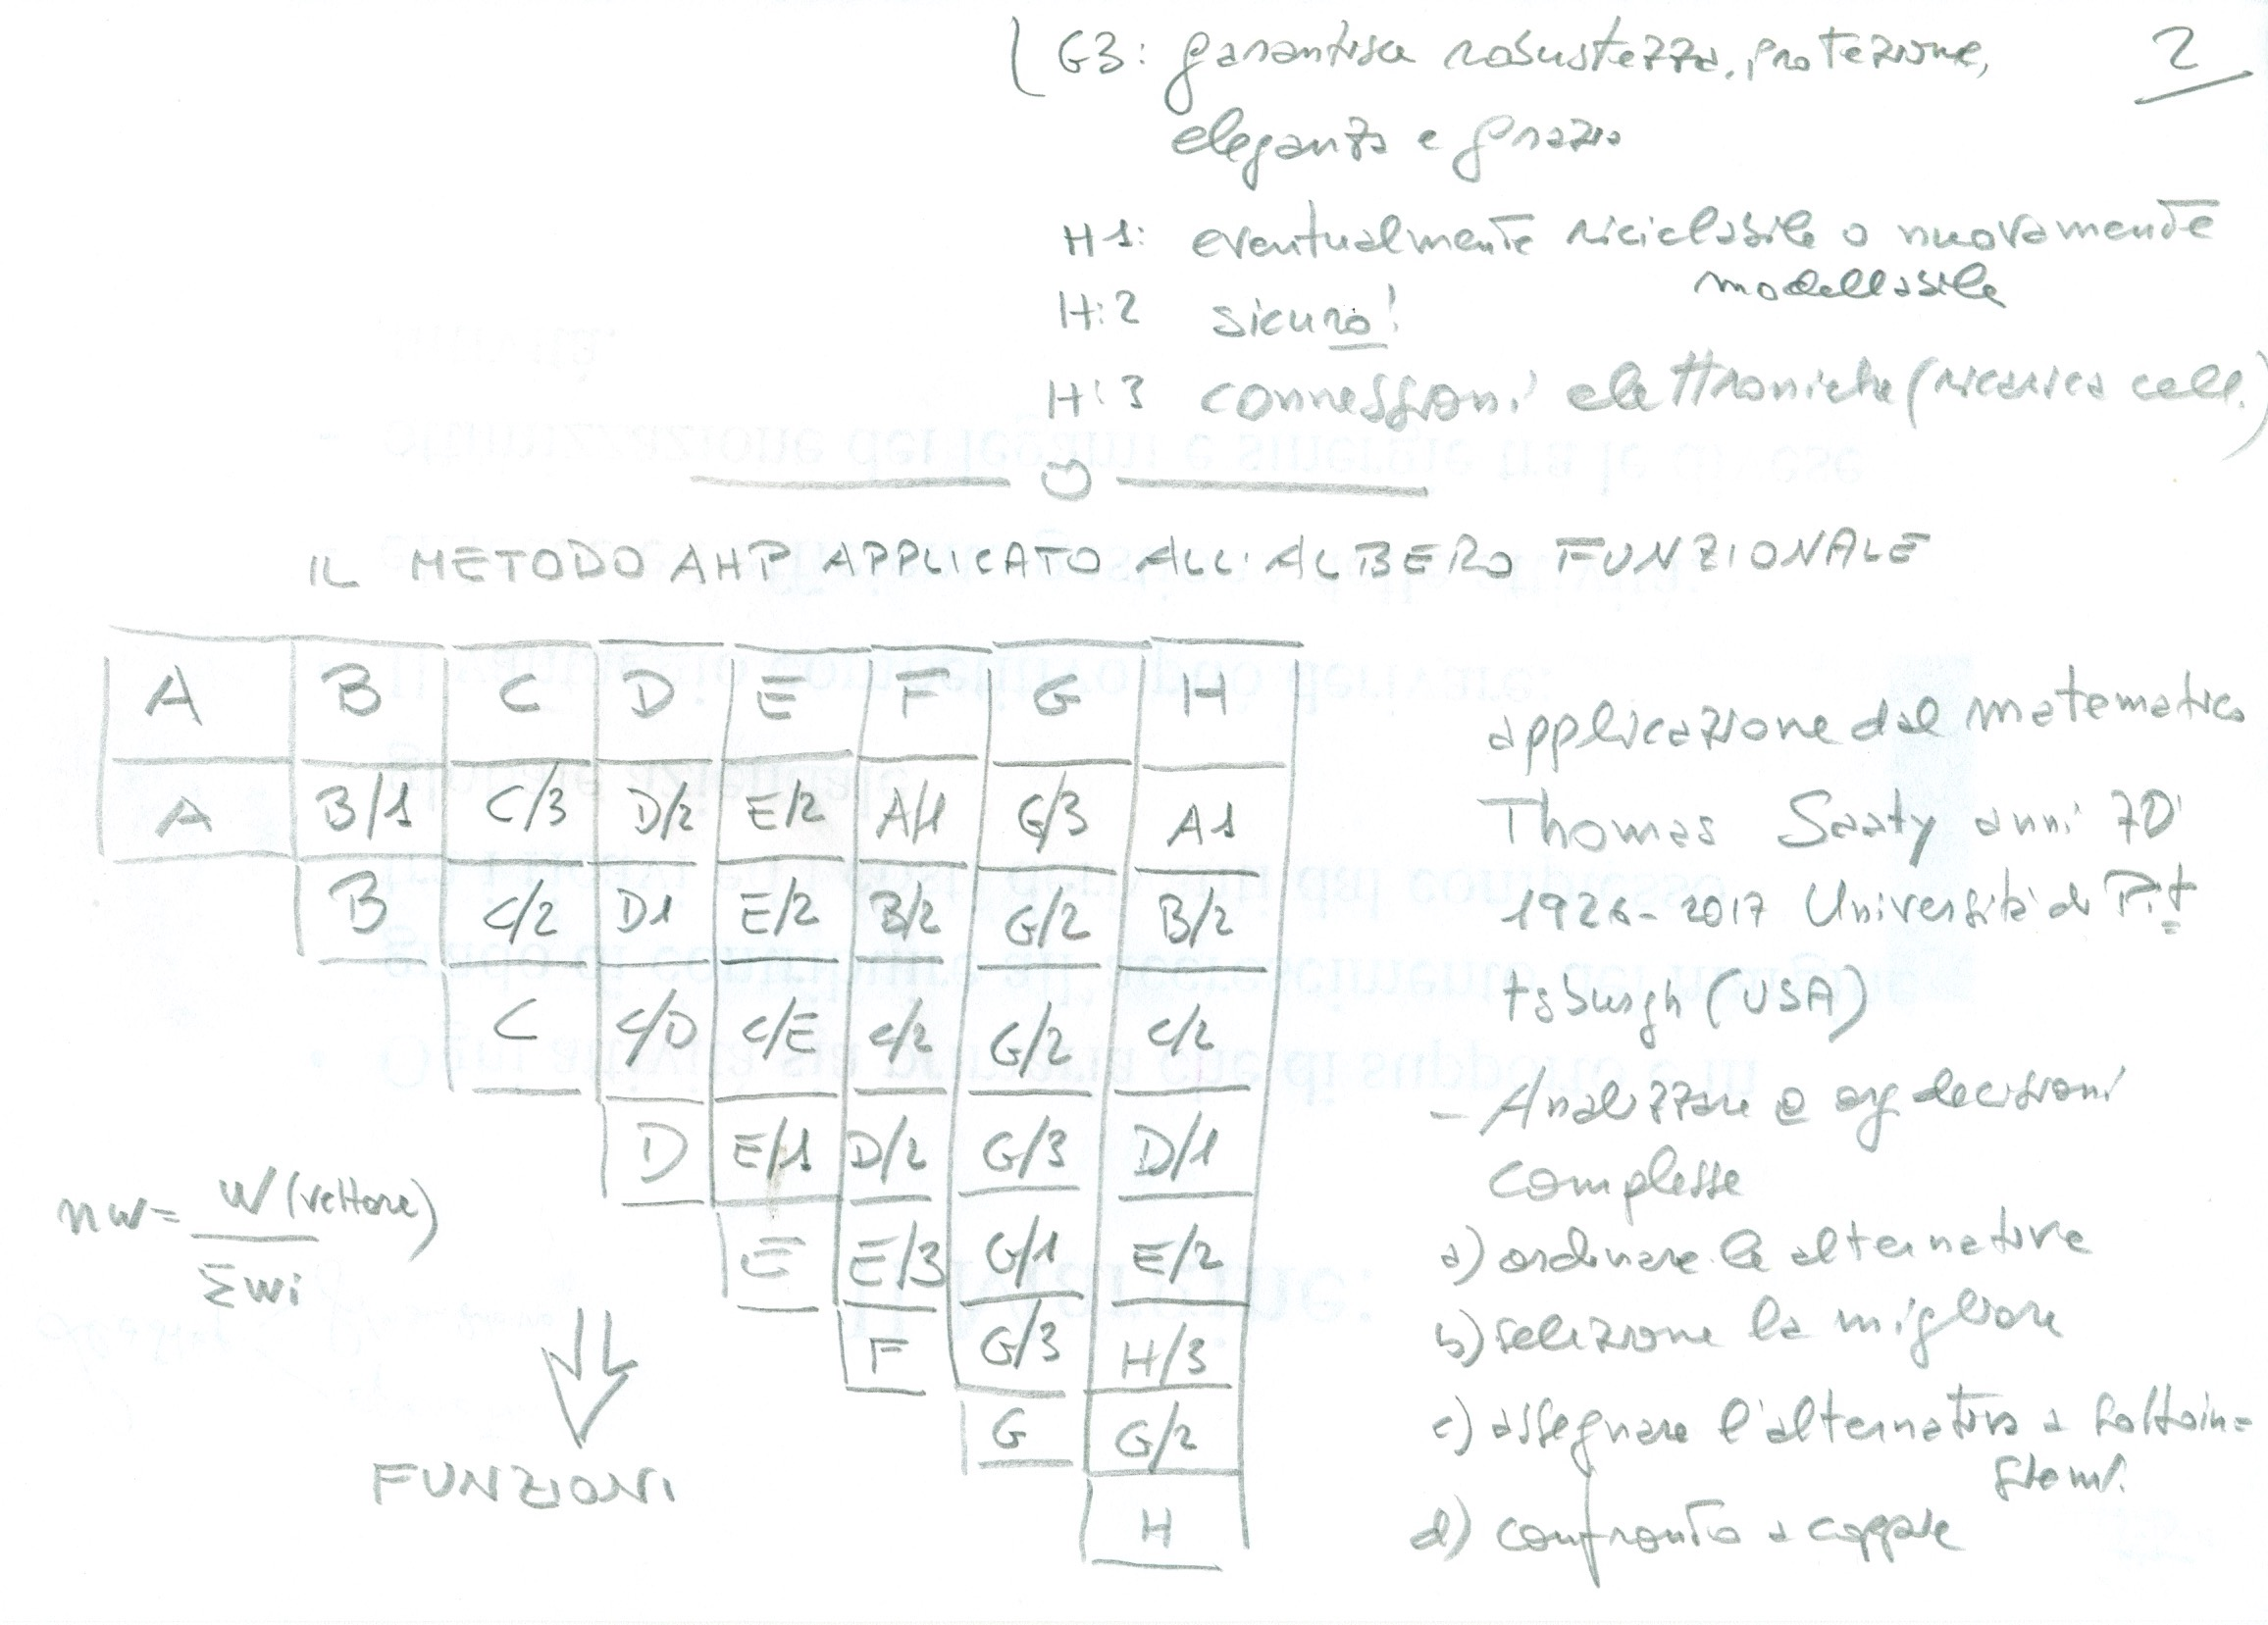 G3: garantisce robustezza, protezione,
2
eleganza e grazia
H1: eventualmente riciclabile o nuovamente
modellabile
H:2 sicuro!
H:3 connessioni elettroniche (ricarica cell.)
IL METODO AHP APPLICATO ALL'ALBERO FUNZIONALE
A B C D E F G H
A B/1 C/3 D/2 E/2 A/1 G/3 A1
B C/2 D1 E/2 B/2 G/2 B/2
C C/D C/E C/2 G/2 C/2
D E/1 D/2 G/3 D/1
E E/3 G/1 E/2
F G/3 H/3
G G/2
H
applicazione dal matematico
Thomas Saaty anni 70'
1926-2017 Università di Pit
tsburgh (USA)
- Analizzare e org decisioni
complesse
a) ordinare le alternative
b) selezione la migliore
c) assegnare l'alternativa a sottoin=
siemi.
d) confronto a coppie
nw = W (vettore)
Σwi
FUNZIONI